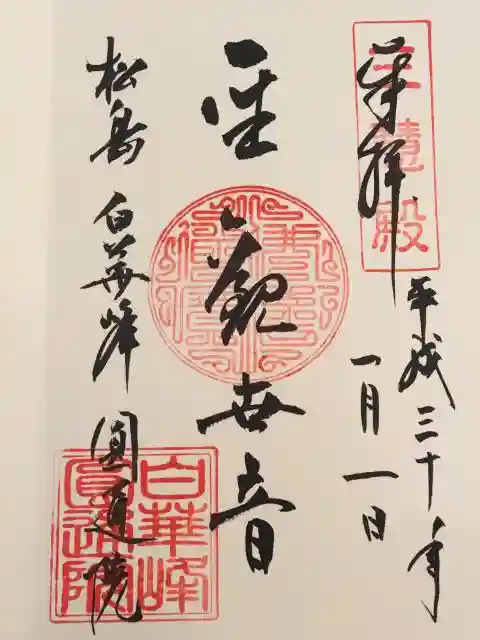 奉拝
三慧殿
平成三十年
一月一日
聖観世音
松島 白華峰 圓通院
白華峰
圓通院